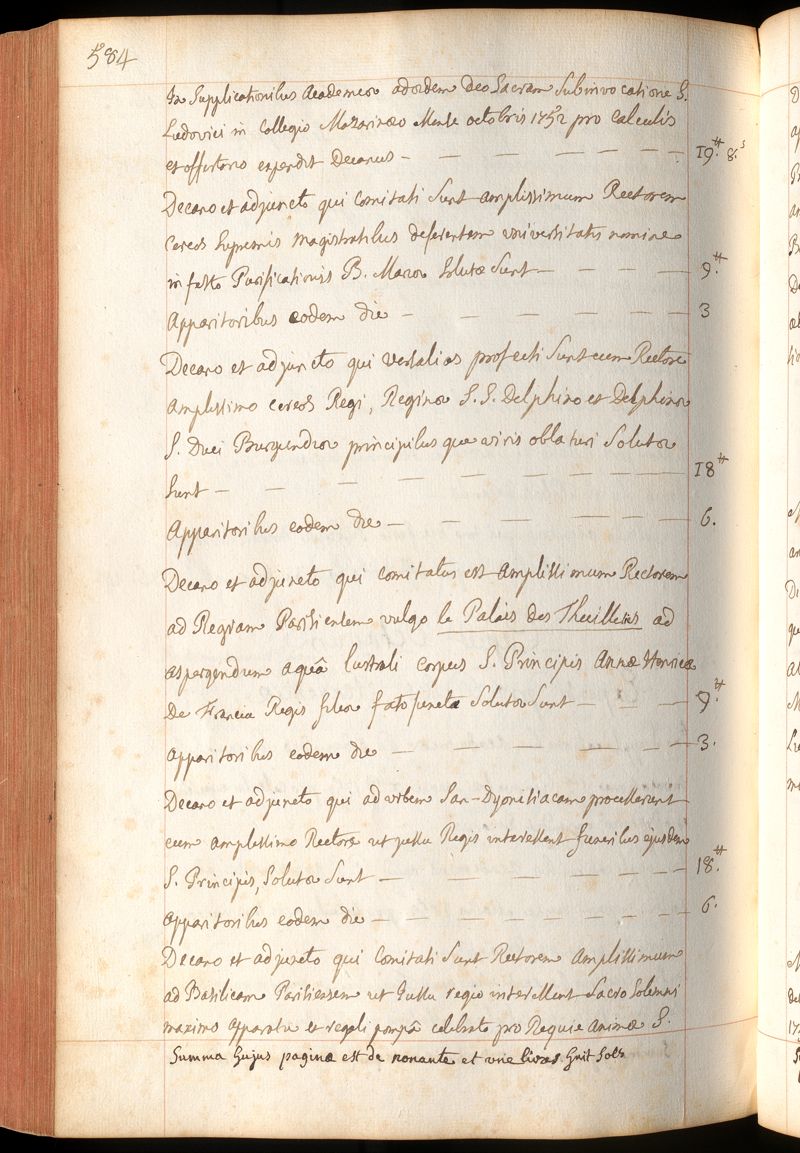 584
In Supplicationibus Academicæ ad ædem Deo Sacram Sub invocatione S.
Ludovici in Collegio Mazarinæo Mense octobris 1752 pro calculis
et offertorio expendit Decanus — — — — — — 19.# 8.s
Decano et adjuncto qui comitati Sunt amplissimum Rectorem
Cereos Supremis magistratibus deferentem universitatis nomine
in festo Purificationis B. Mariæ Solutæ Sunt — — — — 9.#
Apparitoribus eodem die — — — — — — 3
Decano et adjuncto qui versalias profecti Sunt cum Rectore
amplissimo cereos Regi, Reginæ S.S. Delphino et Delphinæ
S. Duci Burgundiæ principibus que viris oblaturi Solutæ
Sunt — — — — — — — — 18#
Apparitoribus eodem die — — — — — — 6.
Decano et adjuncto qui comitatus est amplissimum Rectorem
ad Regiam Parisiensem vulgo le Palais des Thuilleries ad
aspergendum aquâ lustrali corpus S. Principis Annæ Henricæ
De Francia Regis filiæ fato functæ Solutæ Sunt — — — 9.#
apparitoribus eodem die — — — — — — 3.
Decano et adjuncto qui ad urbem San-Dyonisiacam processerunt
cum amplissimo Rectore ut jussu Regis interessent funeribus ejusdem
S. Principis, Solutæ Sunt — — — — — — 18.#
apparitoribus eodem die — — — — — — 6.
Decano et adjuncto qui Comitati Sunt Rectorem Amplissimum
ad Basilicam Parisiensem ut Jussu regio interessent Sacro Solemni
maximo apparatu et regali pompâ celebrato pro Requie Animæ S.
Summa hujus paginæ est de nonante et une livres huit Sols